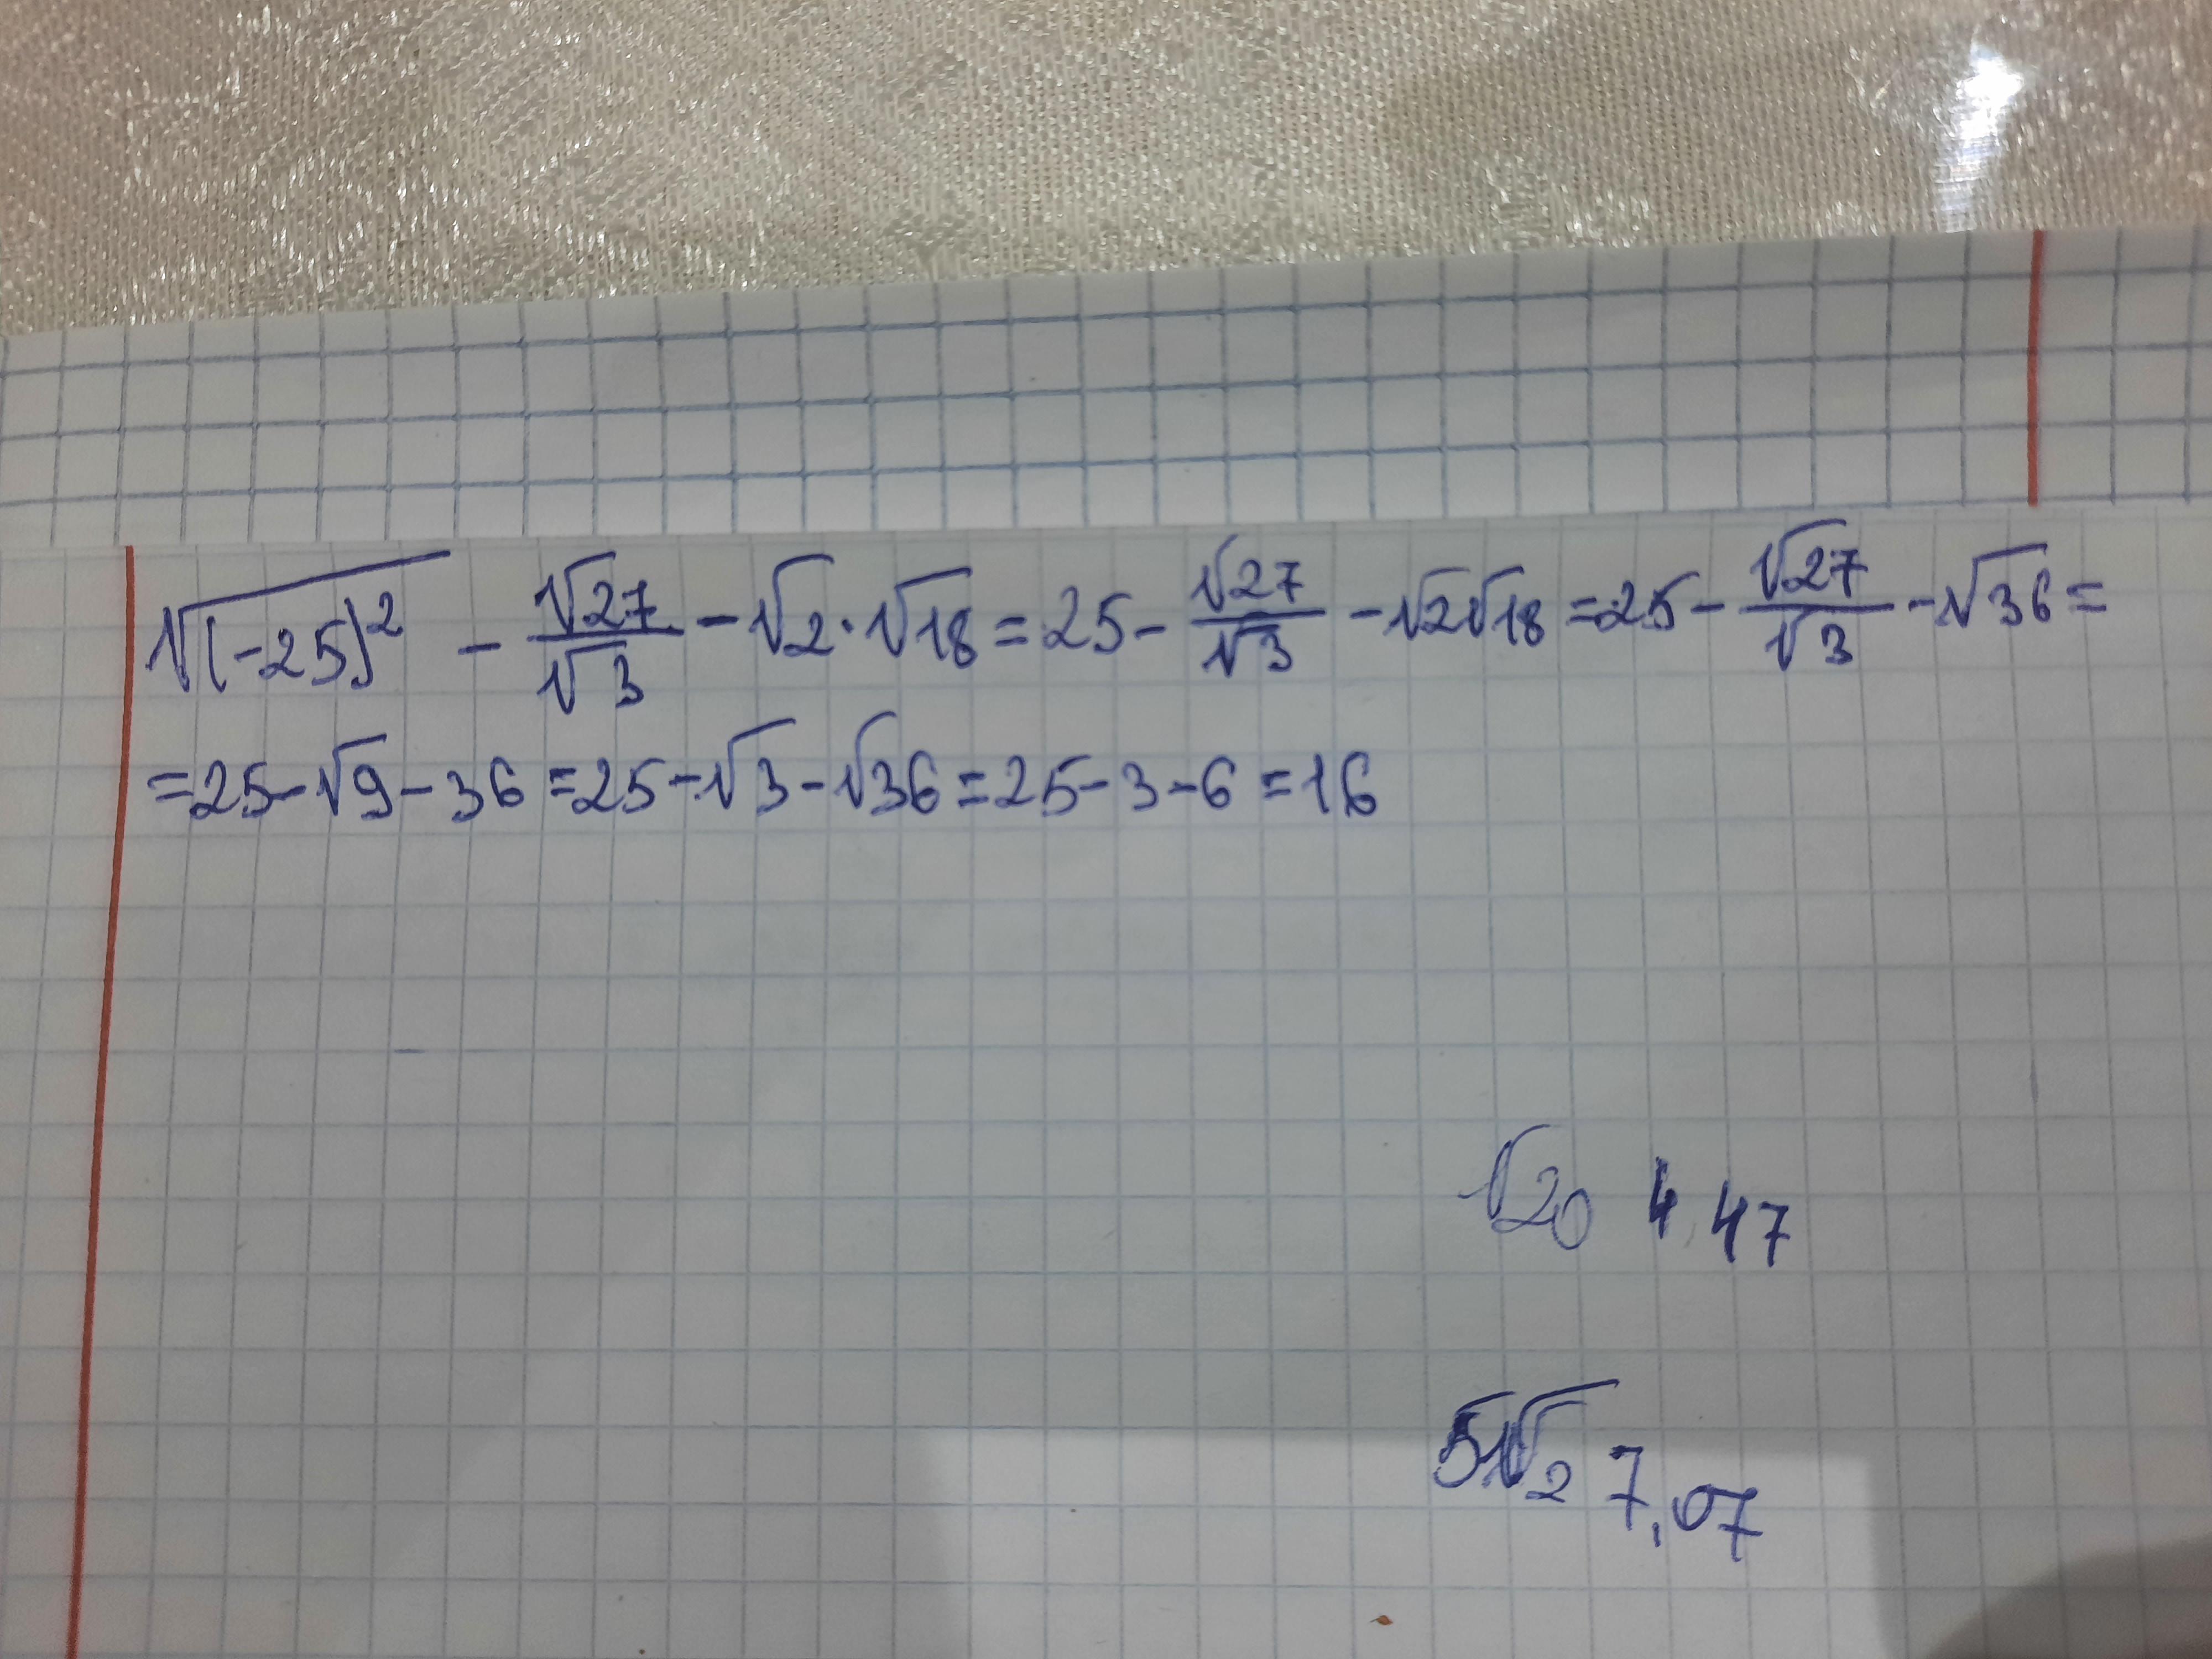 √(-25)² - √27/√3 - √2 · √18 = 25 - √27/√3 - √2√18 = 25 - √27/√3 - √36 =
= 25 - √9 - 36 = 25 - √3 - √36 = 25 - 3 - 6 = 16
√20 4,47
5√2 7,07